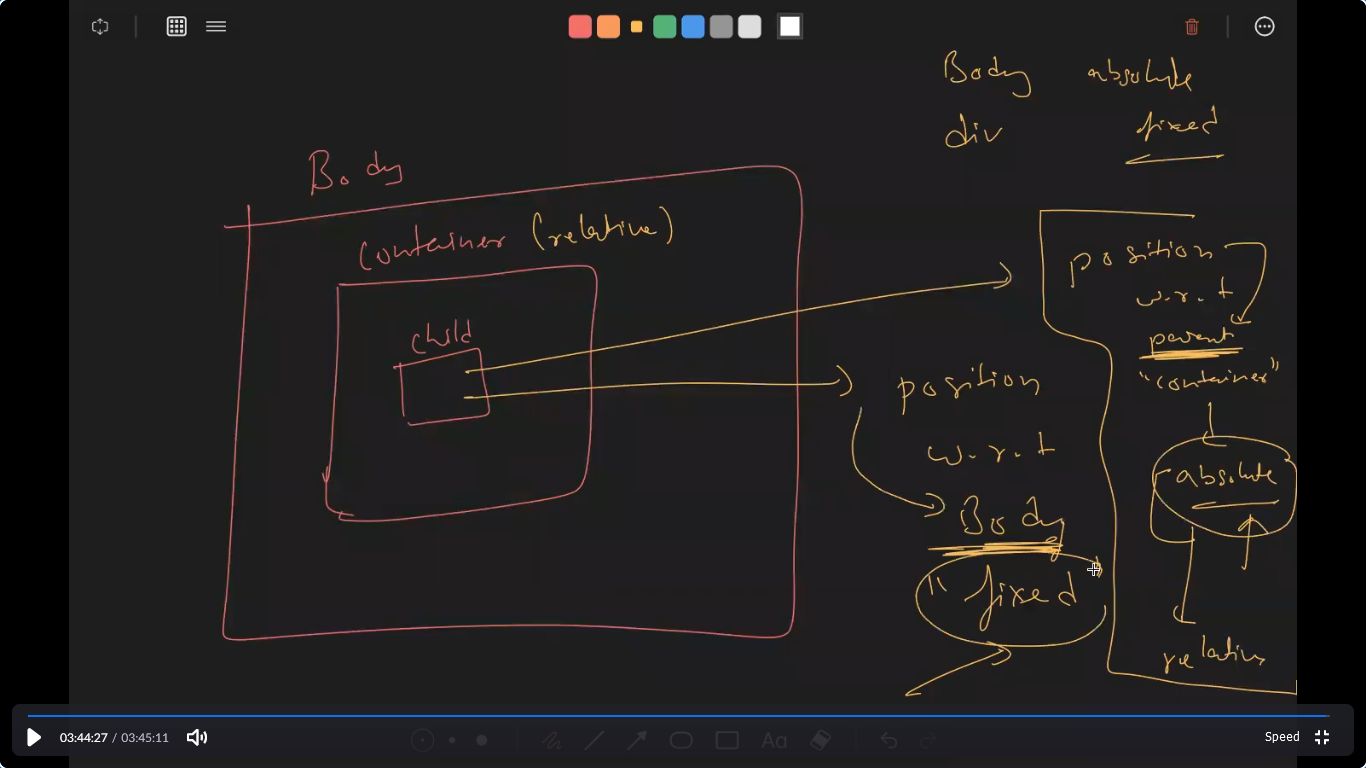 Body absolute
div fixed
Body
container (relative)
child
position
w.r.t
parent
"container"
absolute
relative
position
w.r.t
Body
" fixed
03:44:27 / 03:45:11
Speed
Aa